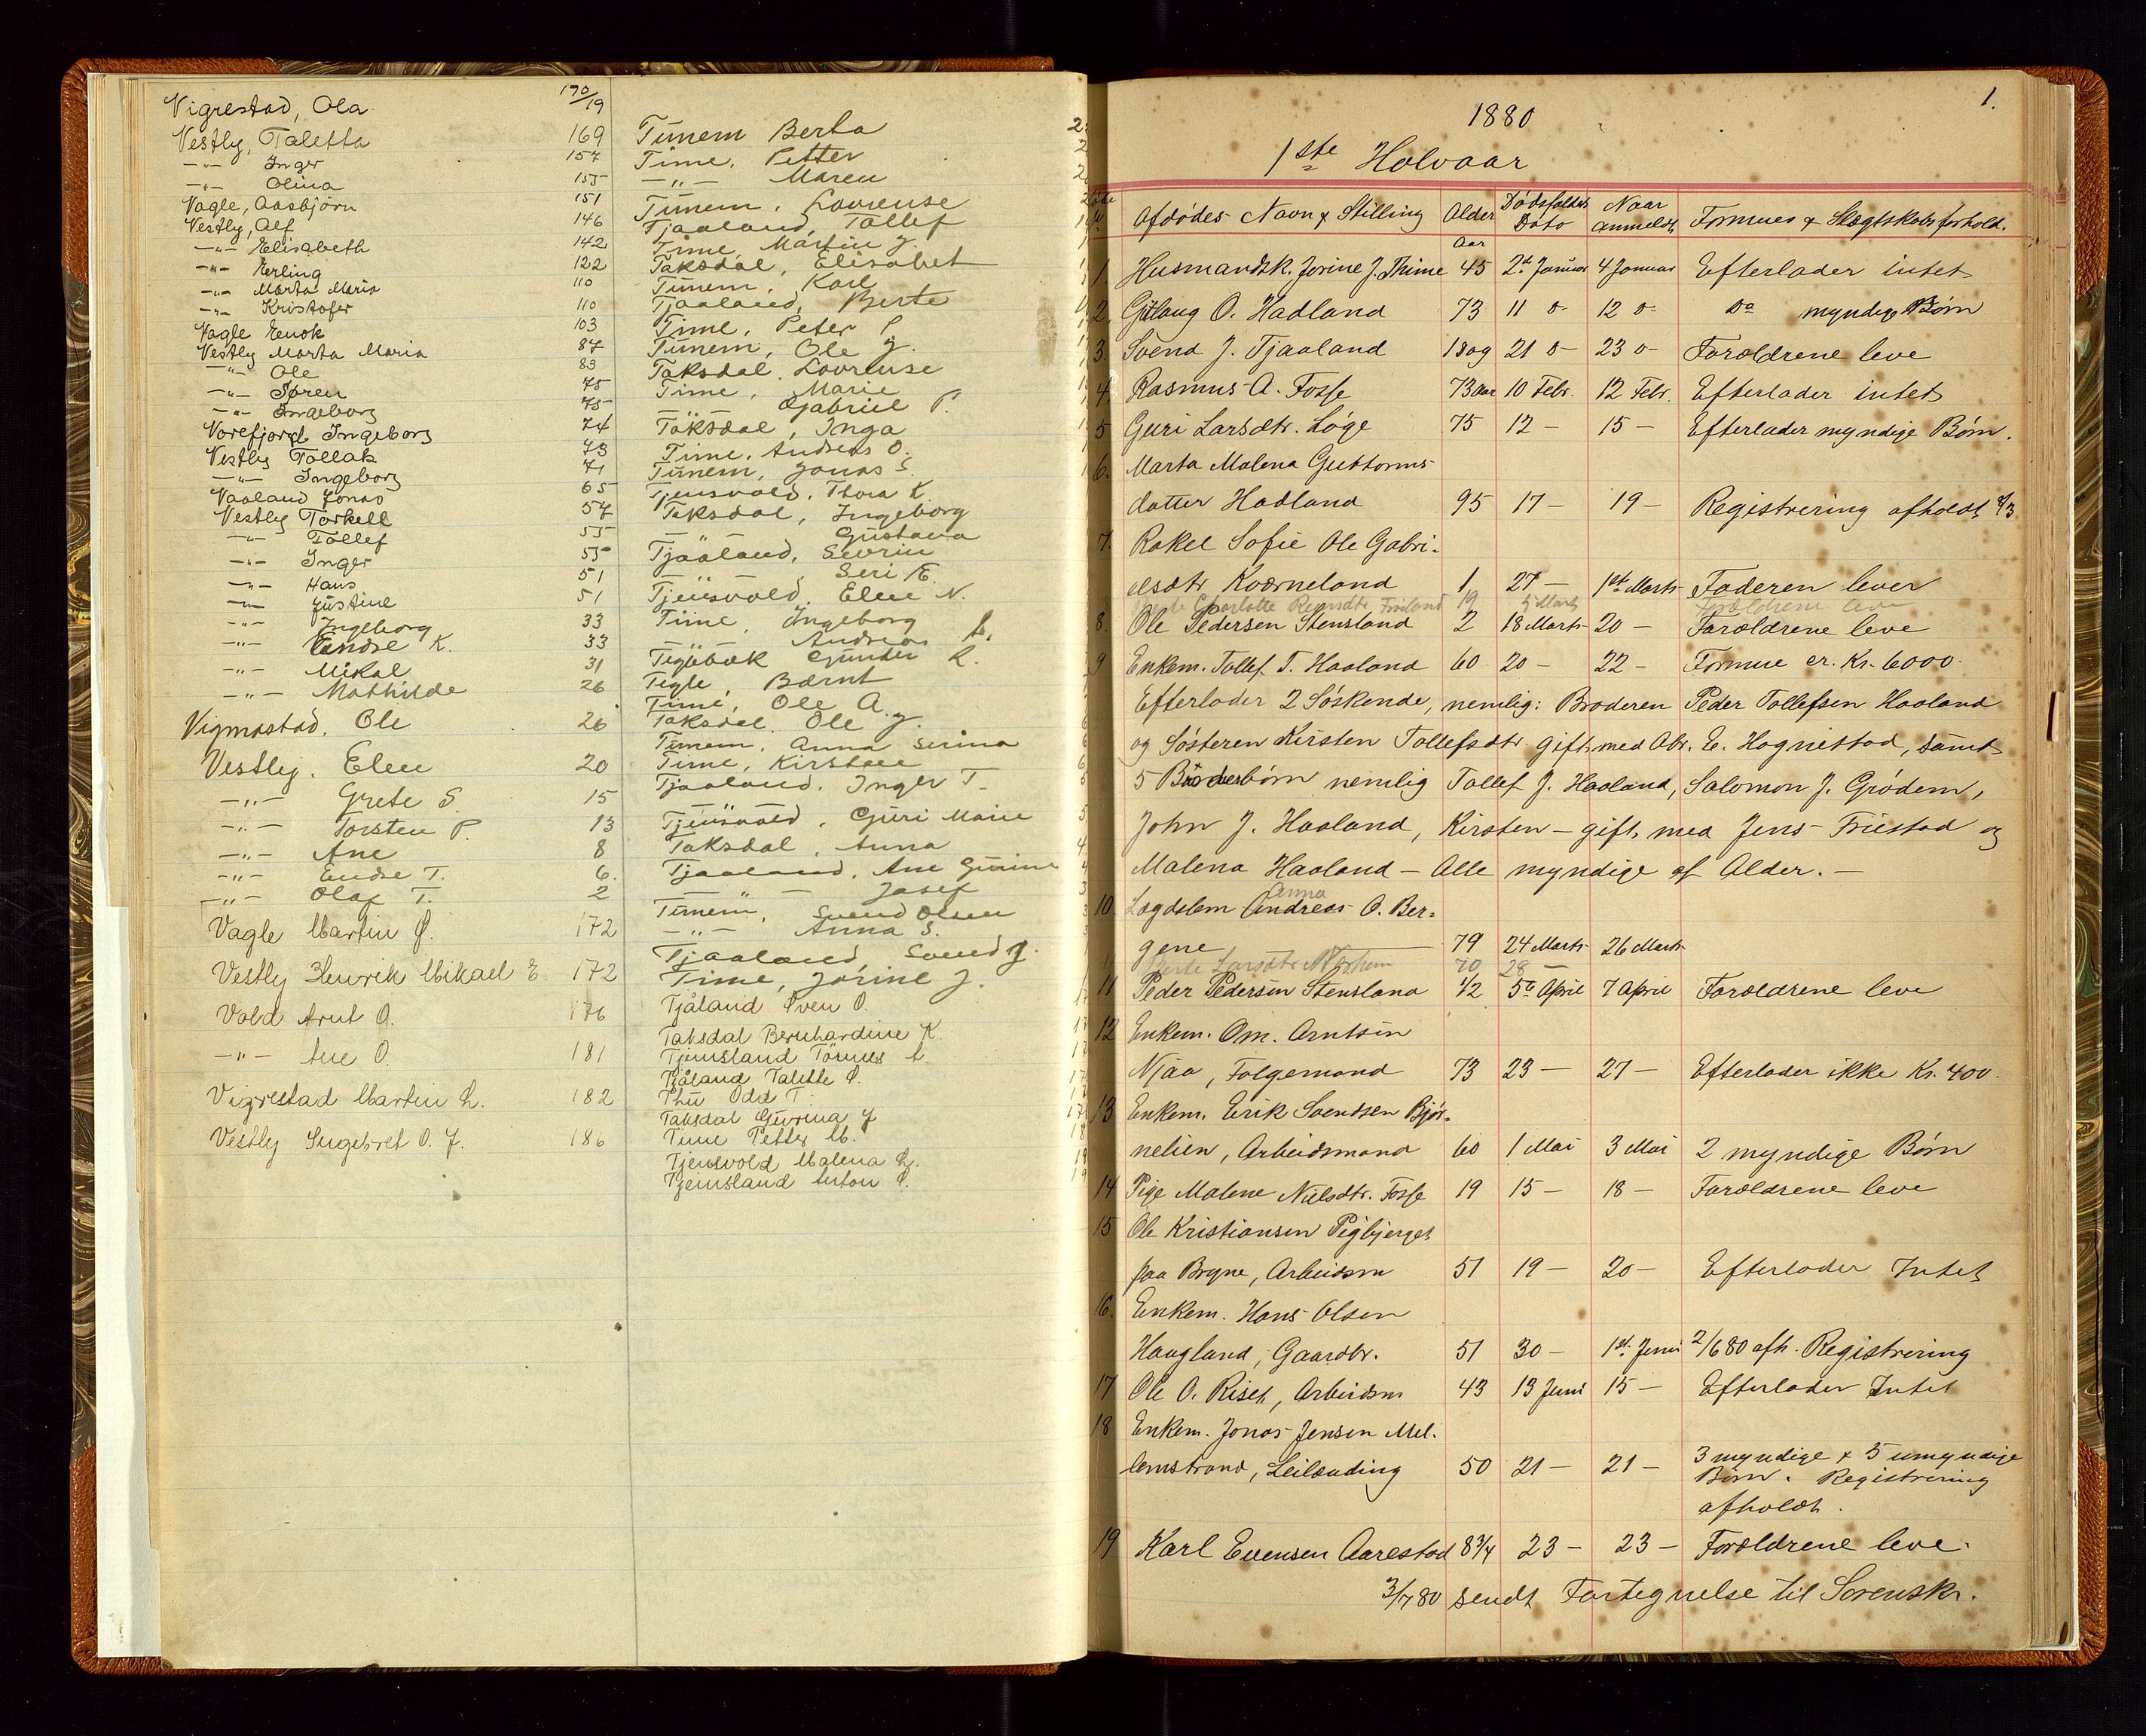 Vigrestad, Ola 190/19
Vestly, Taletta 169
-"- Inger 157
-"- Olina 155
Vagle, Aasbjørn 151
Vestly, Alf 146
-"- Elisabeth 142
-"- Erling 122
-"- Marta Maria 110
-"- Kristofer 110
Vagle Enok 103
Vestly Marta Maria 87
-"- Ole 83
-"- Søren 75
-"- Ingeborg 75
Vorefjord Ingeborg 74
Vestly Tollak 73
-"- Ingeborg 71
Vaaland Jonas 65
Vestly Torkell 57
-"- Tollef 55
-"- Inger 55
-"- Hans 51
-"- Justine 51
-"- Ingeborg 33
-"- Endre K. 33
-"- Mikal 31
-"- Mathilde 26
Vigmostad, Ole 26
Vestly, Elen 20
-"- Grete S. 15
-"- Torsten P. 13
-"- Ane 8
-"- Endre T. 6.
-"- Olaf T. 2
Vagle Martin O. 172
Vestly Henrik Mikael E. 172
Vold Arnt O. 176
-"- Ane O. 181
Vigrestad Martin L. 182
Vestly Ingebret O. J. 186
Tunem Berta
Time, Petter
-"- Maren
Tunem, Lovrense
Tjaaland, Tollef
Time, Martin J.
Taksdal, Elisabet
Tunem, Karl
Tjaaland, Berte
Time, Peter P.
Tunem, Ole J.
Taksdal, Lovrense
Time, Marie
-"- Gabriel P.
Taksdal, Inga
Time, Andreas O.
Tunem, Jonas S.
Tjensvold, Thora K.
Taksdal, Ingeborg
-"- Gustava
Tjaaland, Sevrin
-"- Seri E.
Tjensvold, Elen N.
Time, Ingeborg
-"- Andreas L.
Teglebæk Gunder L.
Tegle, Bærnt
Time, Ole A.
Taksdal, Ole J.
Tunem, Anna Serina
Time, Kirstine
Tjaaland, Inger T.
Tjensvold, Guri Marie
Taksdal, Anna
Tjaaland, Ane Gurine
-"- Josef
Tunem, Svend Olsen
-"- Anna S.
Tjaaland, Svend J.
Time, Jorine J.
Tjåland Sven O.
Taksdal Bernhardine K.
Tjemsland Tønnes A.
Tjåland Talette O.
Thu Odd T.
Taksdal Gurina J
Time Petter M.
Tjensvold Malena L.
Tjemsland Anton O.
1.
1880
1ste Halvaar
Afdødes Navn & Stilling Alder Dødsfaldets Dato Naar anmeldt Formues & Slægtskabsforhold.
Aar
1. Husmandsk. Jorine J. Thime 45 2d Januar 4 Januar Efterlader intet
2. Gutlaug O. Hadland 73 11 o- 12 o- Do myndige Børn
3. Svend J. Tjaaland 18 og 21 o- 23 o- Forældrene leve
4. Rasmus A. Fosse 73 aar 10 Febr. 12 Febr. Efterlader intet
5 Guri Larsdtr. Løge 75 12 - 15 - Efterlader myndige Børn.
6. Marta Malena Guttorms-
datter Hadland 95 17 - 19 - Registrering afholdt 4/3
7. Rakel Sofie Ole Gabri-
elsdtr. Kværneland 1 27 - 1st Marts Faderen lever
Charlotte Reinsdtr. Frøiland 19 4 Marts Forældrene leve
8. Ole Pedersen Stensland 2 18 Marts 20 - Forældrene leve
9 Enkem. Tollef T. Haaland 60 20 - 22 - Formue er. Kr. 6000.
Efterlader 2 Søskende, nemlig: Broderen Peder Tollefsen Haaland
og Søsteren Kirsten Tollefsdtr. gift med Abr. E. Hognestad, samt
5 Broderbørn nemlig Tollef J. Haaland, Salomon J. Grødem,
John J. Haaland, Kirsten - gift med Jens Friestad og
Malena Haaland - Alle myndige af Alder. -
Anna
10. Lægdslem Andreas O. Ber-
gene 79 24 Marts 26 Marts
Berte Larsdtr. Norhem 70 28 -
11 Peder Pedersen Stensland 1/2 5te April 7 April Forældrene leve
12 Enkem. Om. Arntsen
Njaa, Følgemand 73 23 - 27 - Efterlader ikke Kr. 400.
13 Enkem. Erik Svendsen Bjør-
nelien, Arbeidsmand 60 1 Mai 3 Mai 2 myndige Børn
14 Pige Malene Nielsdtr. Fosse 19 15 - 18 - Forældrene leve
15 Ole Kristiansen Pigbjerget
paa Bryne, Arbeidsm 51 19 - 20 - Efterlader Intet
16. Enkem. Hans Olsen
Haugland, Gaardbr. 51 30 - 1st Juni 2/6 80 afh. Registrering
17 Ole O. Riset, Arbeidsm 43 13 Juni 15 - Efterlader Intet
18 Enkem. Jonas Jensen Mel-
lemstrand, Leilænding 50 21 - 21 - 3 myndige & 5 umyndige
Børn. Registrering
afholdt.
19 Karl Evensen Aarestad 8 3/4 23 - 23 - Forældrene leve.
3/7 80 sendt Fortegnelse til Sorenskr.